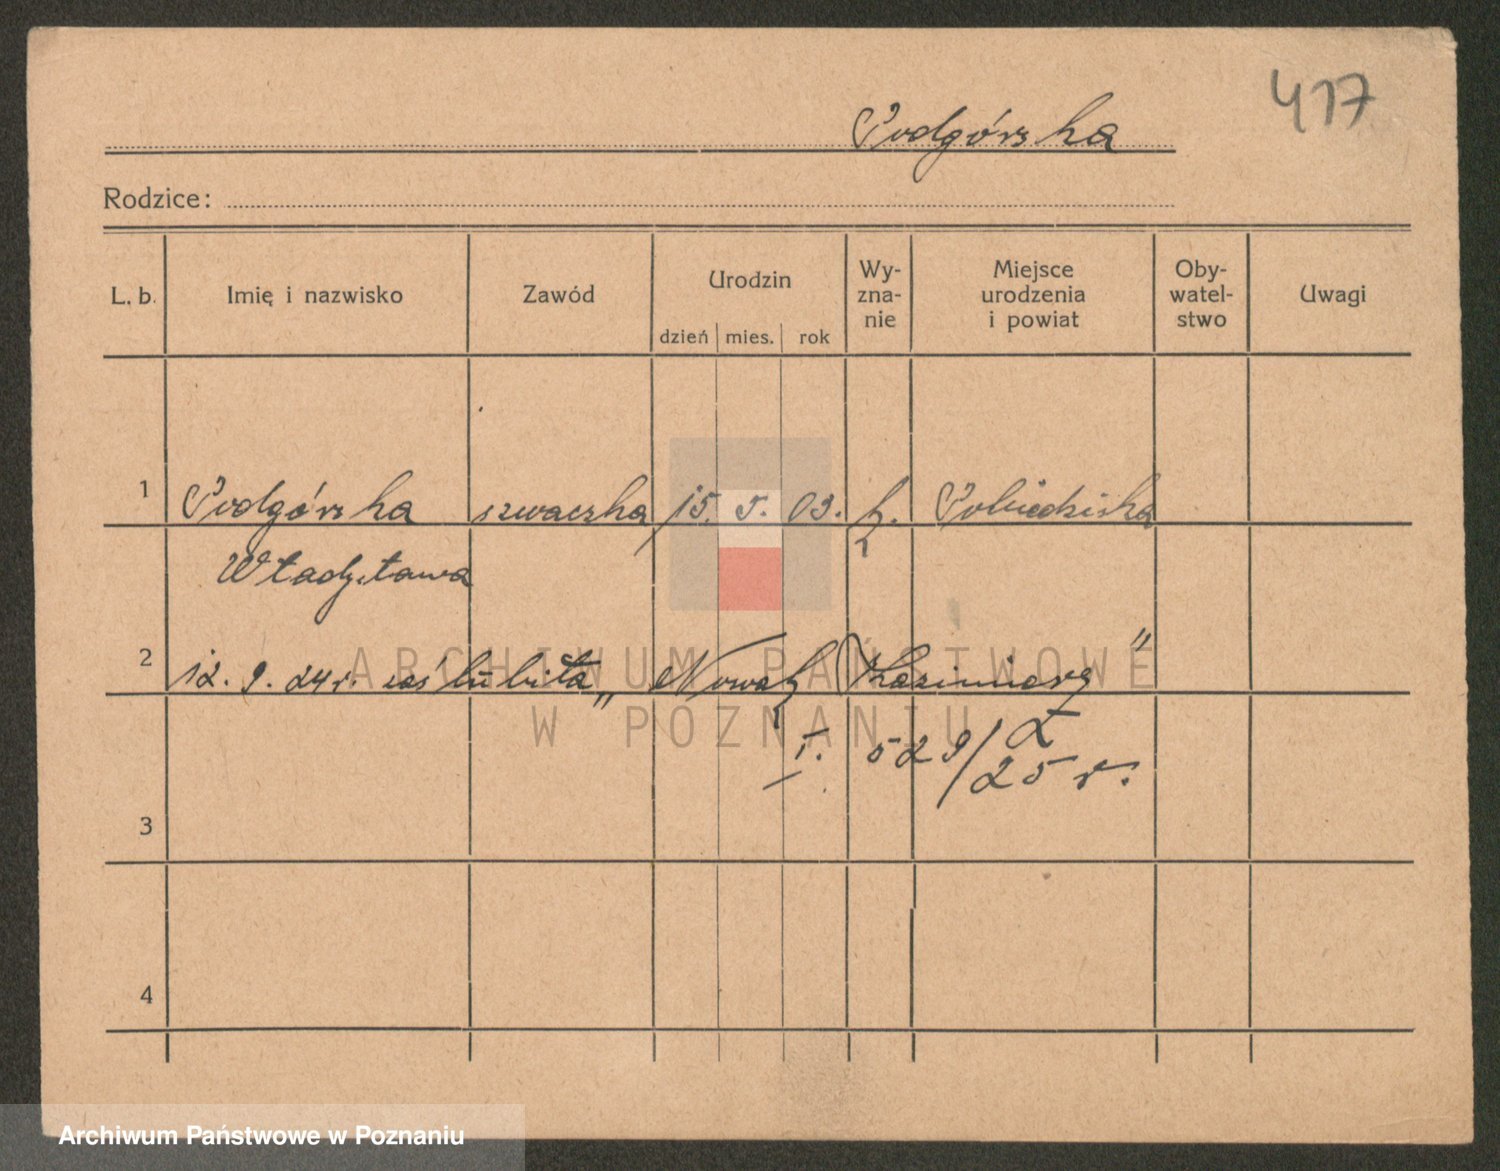 417
Podgórska
Rodzice:
L. b. Imię i nazwisko Zawód Urodzin dzień mies. rok Wy-zna-nie Miejsce urodzenia i powiat Oby-watel-stwo Uwagi
1 Podgórska szwaczka 15. 5. 03. k. Pobiedziska
Władysława
2 12. 9. 24 r. zaślubiła „Nowak Kazimierz"
I. 529/Z
25 r.
3
4
ARCHIWUM PAŃSTWOWE
W POZNANIU
Archiwum Państwowe w Poznaniu